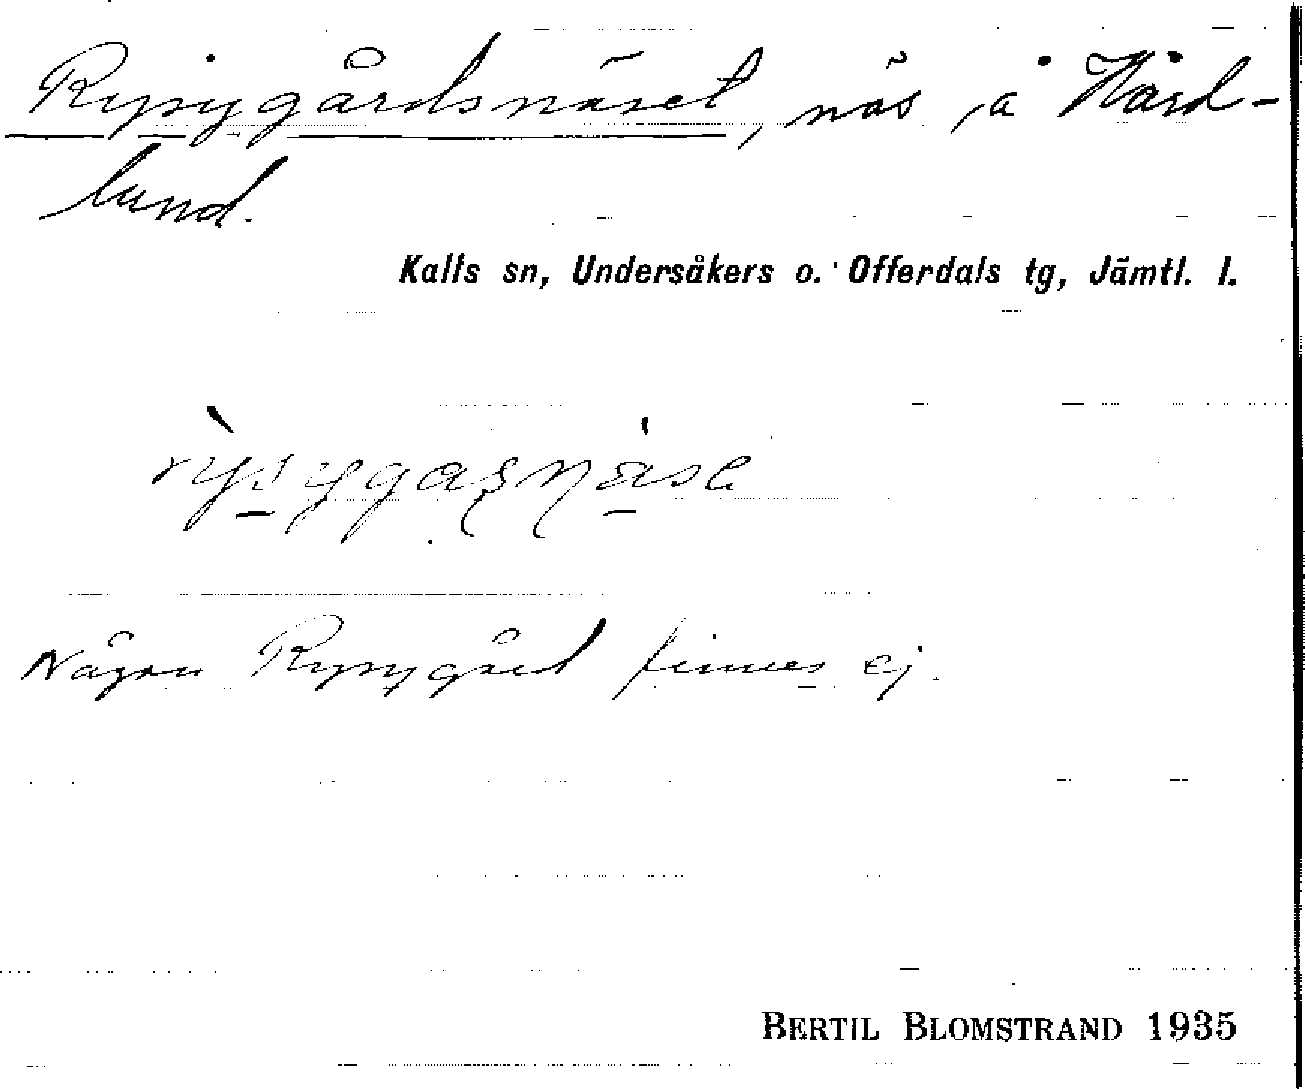 Rypigårdsnäset, näs å Hård-
lund.
Kalls sn, Undersåkers o. Offerdals tg, Jämtl. l.
Någon Rypigård finnes ej.
BERTIL BLOMSTRAND 1935